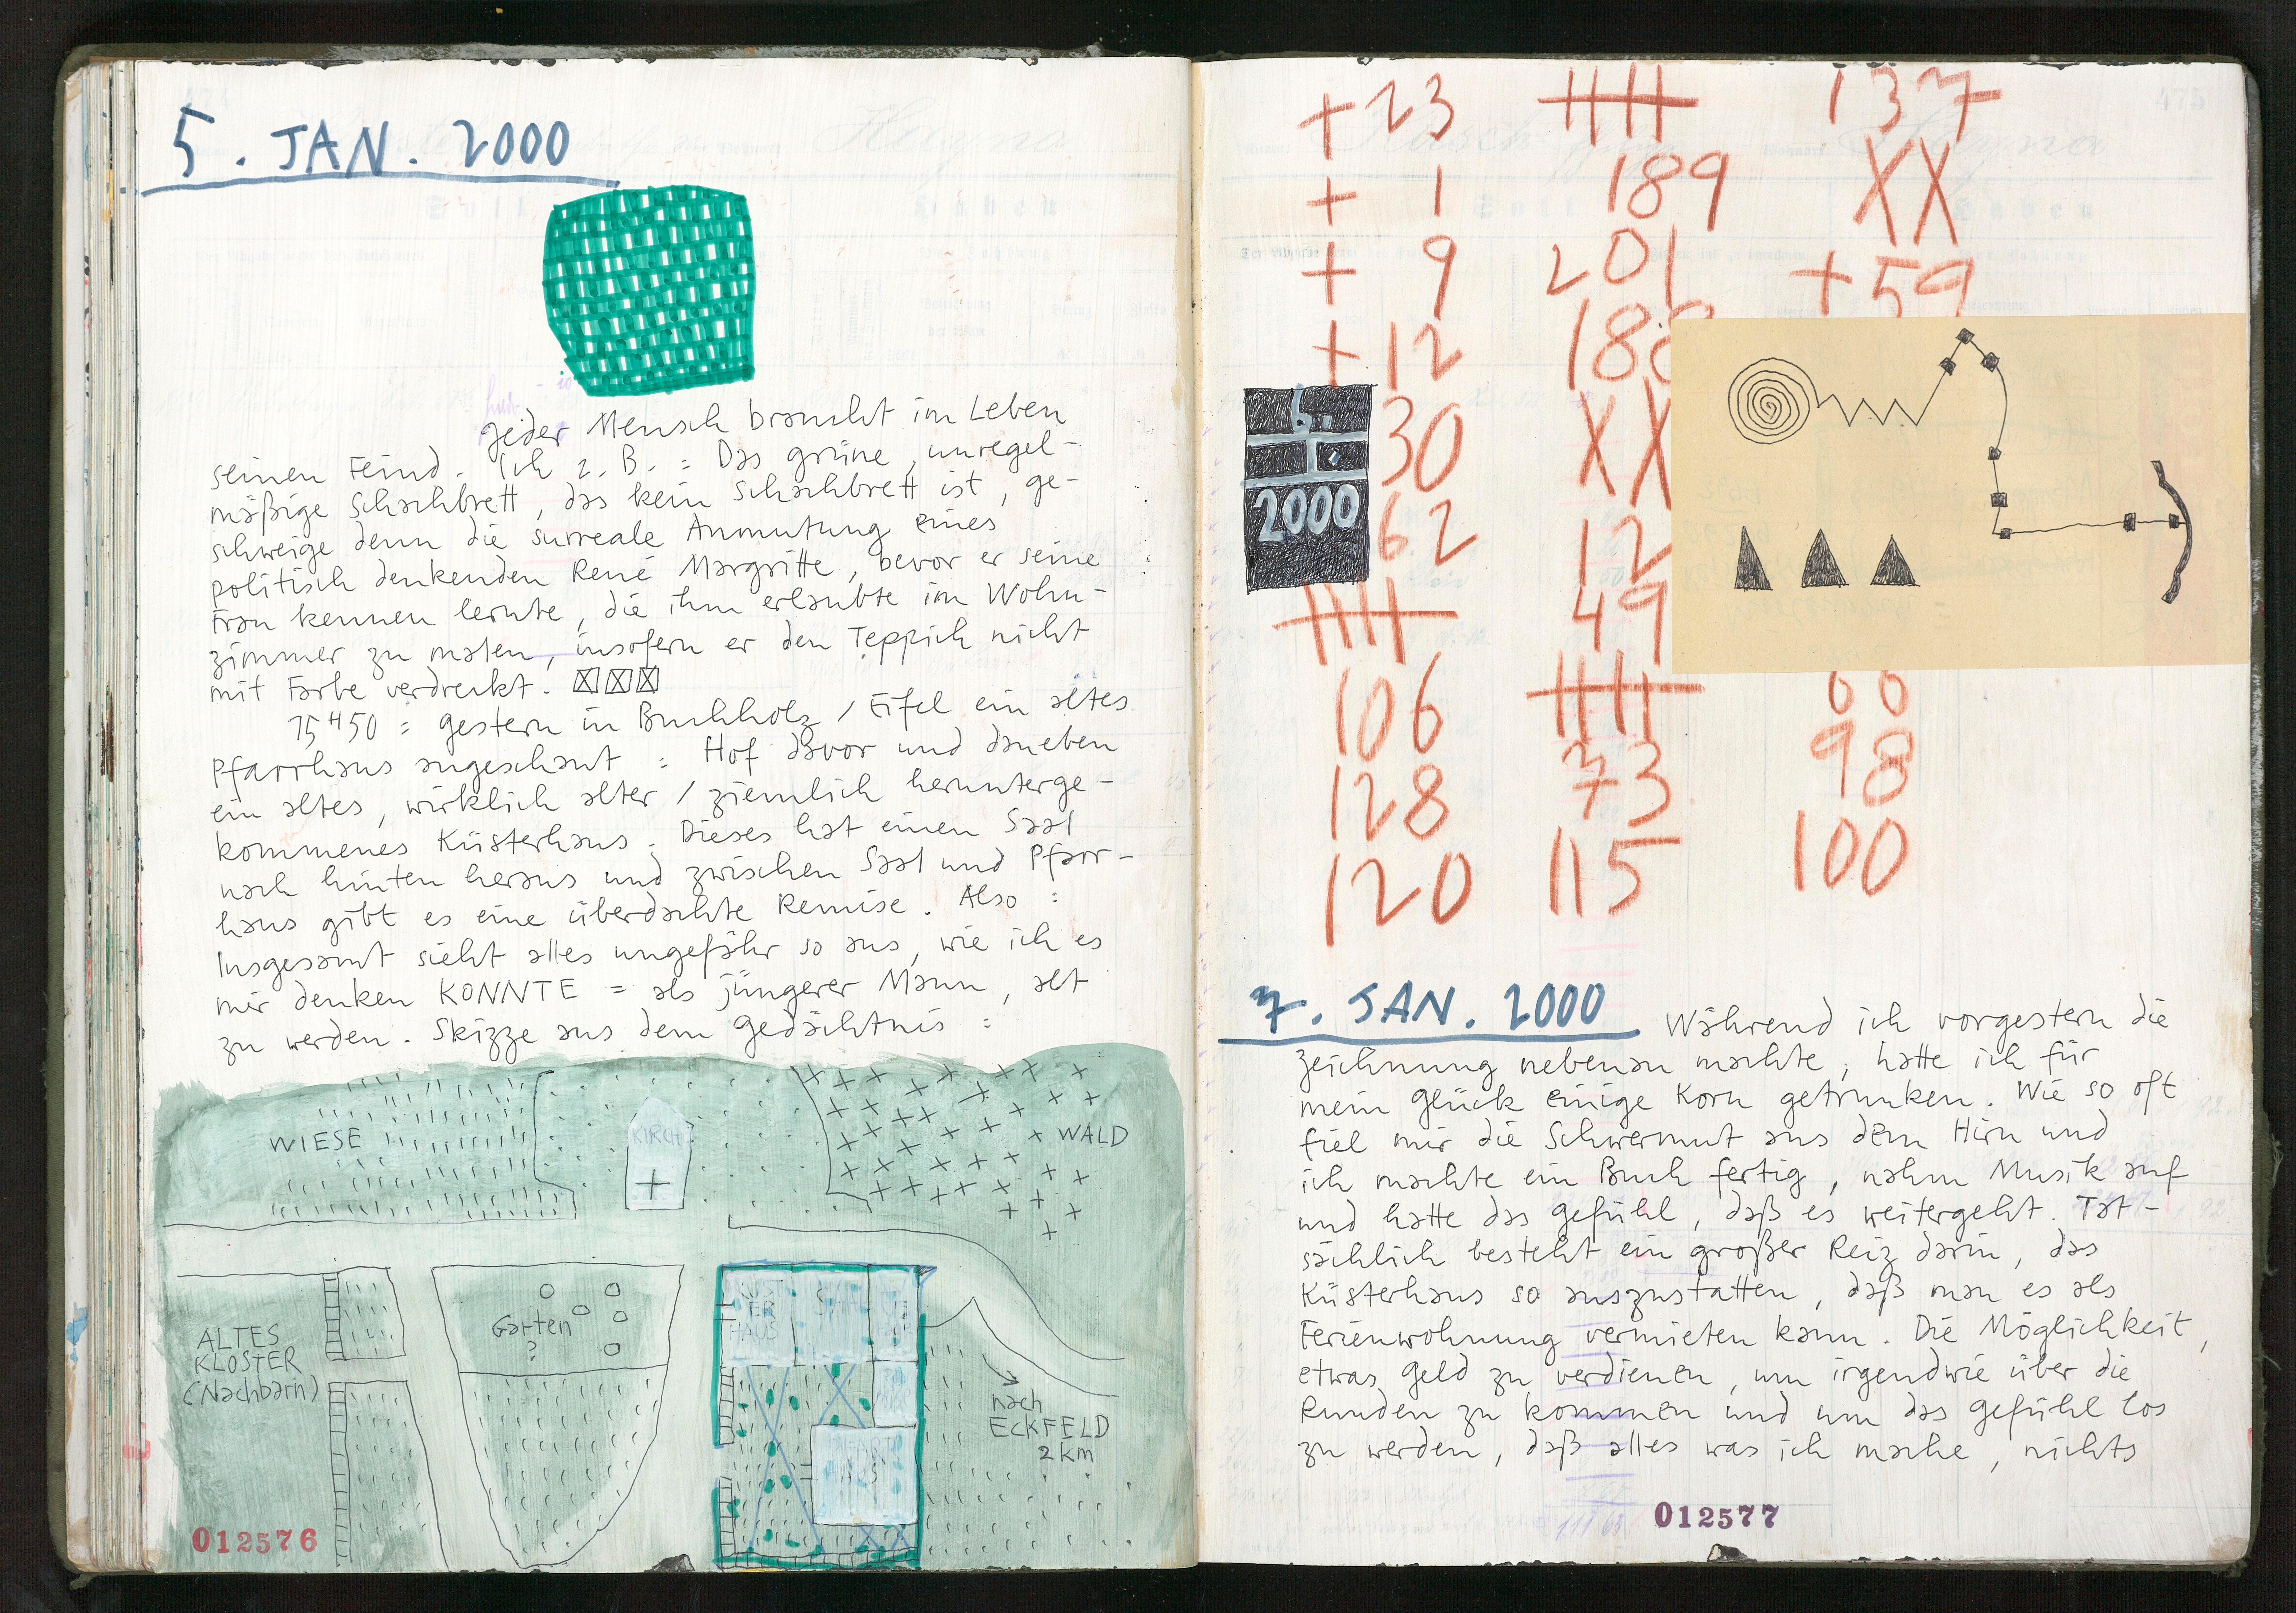 5. JAN. 2000
Jeder Mensch braucht im Leben
seinen Feind. Ich z. B. = Das grüne, unregel-
mäßige Schachbrett, das kein Schachbrett ist, ge-
schweige denn die surreale Anmutung eines
politisch denkenden René Margritte, bevor er seine
Frau kennen lernte, die ihm erlaubte im Wohn-
zimmer zu malen, insofern er den Teppich nicht
mit Farbe verdreckt.
15H50 = gestern in Buchholz / Eifel ein altes
Pfarrhaus angeschaut = Hof davor und daneben
ein altes, wirklich alter / ziemlich herunterge-
kommenes Küsterhaus. Dieses hat einen Saal
nach hinten heraus und zwischen Saal und Pfarr-
haus gibt es eine überdachte Remise. Also =
Insgesamt sieht alles ungefähr so aus, wie ich es
mir denken KONNTE = als jüngerer Mann, alt
zu werden. Skizze aus dem Gedächtnis =
WIESE
KIRCHE
WALD
ALTES
KLOSTER
(Nachbarn)
Garten
?
KÜST
ER
HAUS
nach
ECKFELD
2 km
012576
+ 23
+ 1
+ 9
+ 12
30
62
106
128
120
189
201
XX
12
49
73
115
137
XX
+ 59
98
100
6.
1.
2000
7. JAN. 2000 Während ich vorgestern die
Zeichnung nebenan machte, hatte ich für
mein Glück einige Korn getrunken. Wie so oft
fiel mir die Schwermut aus dem Hirn und
ich machte ein Buch fertig, nahm Musik auf
und hatte das Gefühl, daß es weitergeht. Tat-
sächlich besteht ein großer Reiz darin, das
Küsterhaus so auszustatten, daß man es als
Ferienwohnung vermieten kann. Die Möglichkeit,
etwas Geld zu verdienen, um irgendwie über die
Runden zu kommen und um das Gefühl los
zu werden, daß alles was ich mache, nichts
012577